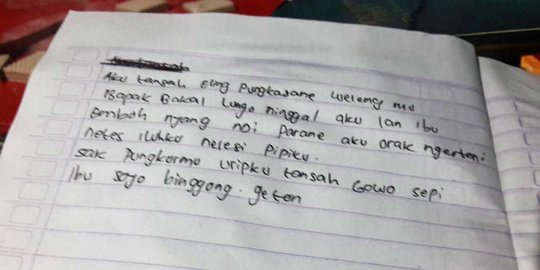 Aku tansah eling pungkasane welengmu
Bapak Bakal lungo ninggal aku lan ibu
Emboh nyang ndi parane aku orak ngerteni
netes iluhku nelesi pipiku.
sak pungkarmo uripku tansah Gowo sepi
Ibu sojo binggong. geten